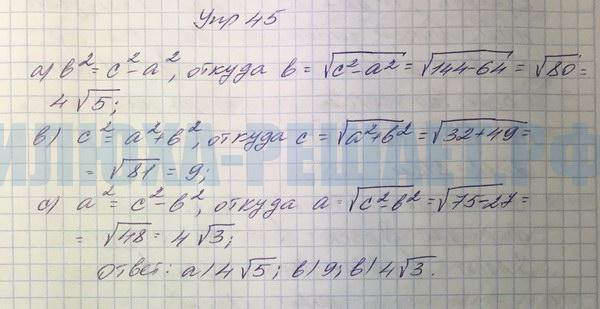 Упр 45
а) b² = c² - a², откуда b = √c² - a² = √144-64 = √80 =
4√5;
в) c² = a² + b², откуда c = √a² + b² = √32+49 =
= √81 = 9;
с) a² = c² - b², откуда a = √c² - b² = √75-27 =
= √48 = 4√3;
ответ: а) 4√5; в) 9; в) 4√3.
ИЛЮХА-РЕШАЕТ.РФ